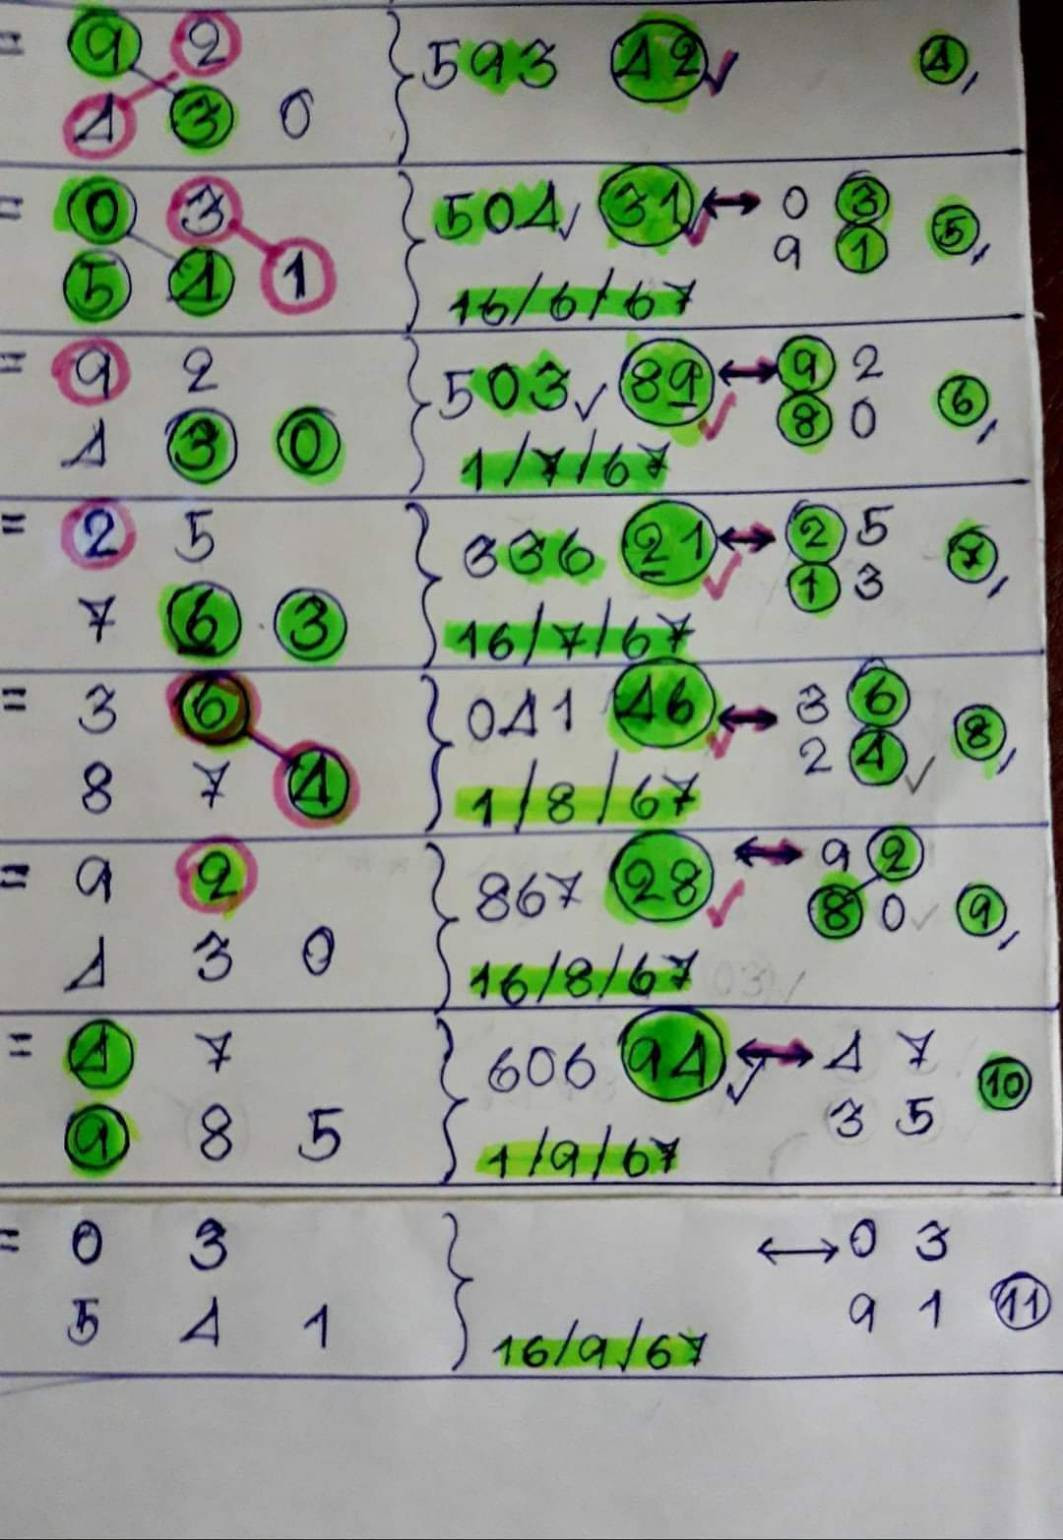 = 9 2 593 42 4,
4 3 0
= 0 3 504 31 ↔ 0 3 5,
5 4 1 9 1
16/6/67
= 9 2 503 89 ↔ 9 2 6,
4 3 0 8 0
1/7/67
= 2 5 336 21 ↔ 2 5 7,
7 6 3 1 3
16/7/67
= 3 6 041 46 ↔ 3 6 8,
8 7 4 2 4
1/8/67
= 9 2 867 28 ↔ 9 2 9,
4 3 0 8 0
16/8/67
= 4 7 606 94 ↔ 4 7 10
9 8 5 3 5
1/9/67
= 0 3 ↔ 0 3
5 4 1 9 1 11
16/9/67